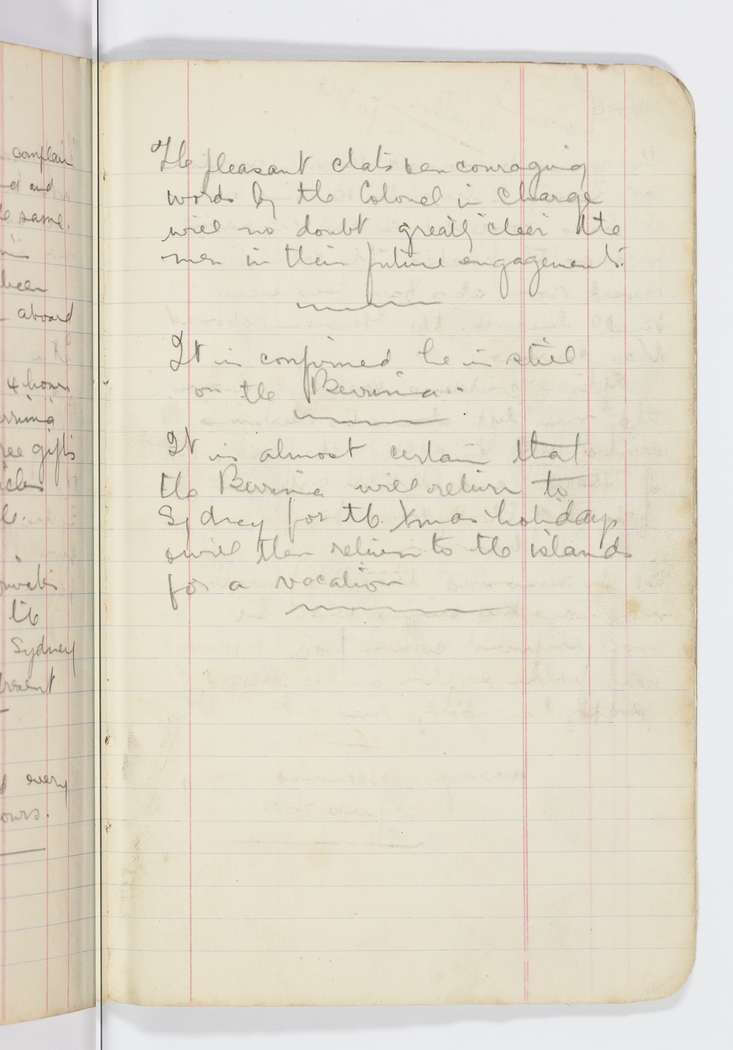 complain
d and
e same.
in
been
aboard
4 hours
errima
ree gifts
icles
the
Sydney
present
every
ours.
The pleasant chats & encouraging
words by the Colonel in charge
will no doubt greatly cheer the
men in their future engagements.
It is confirmed he is still
on the Berrima.
It is almost certain that
the Berrima will return to
Sydney for the Xmas holidays
& will then return to the islands
for a vacation